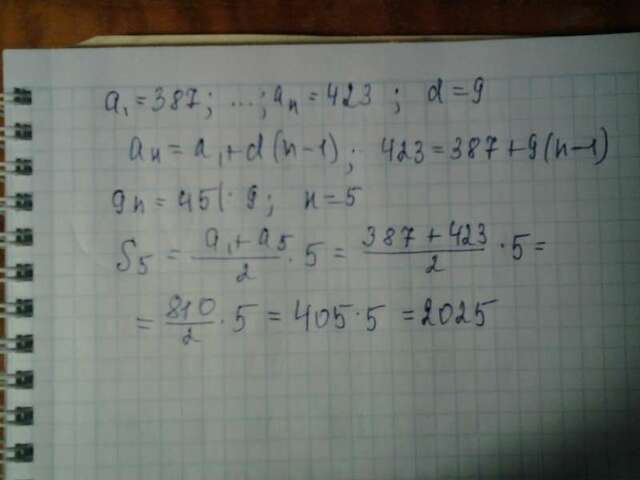 a₁ = 387; ...; aₙ = 423 ; d = 9
aₙ = a₁ + d(n-1); 423 = 387 + 9(n-1)
9n = 45 | : 9; n = 5
S₅ = (a₁ + a₅)/2 · 5 = (387 + 423)/2 · 5 =
= 810/2 · 5 = 405 · 5 = 2025